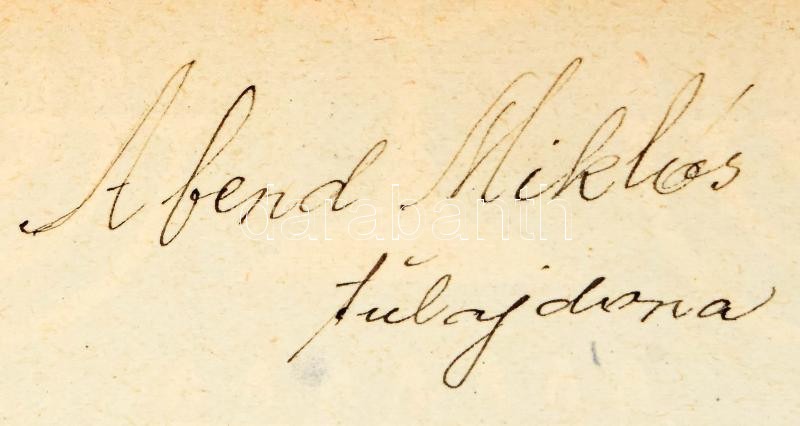 Abend Miklós
darabanth
tulajdona